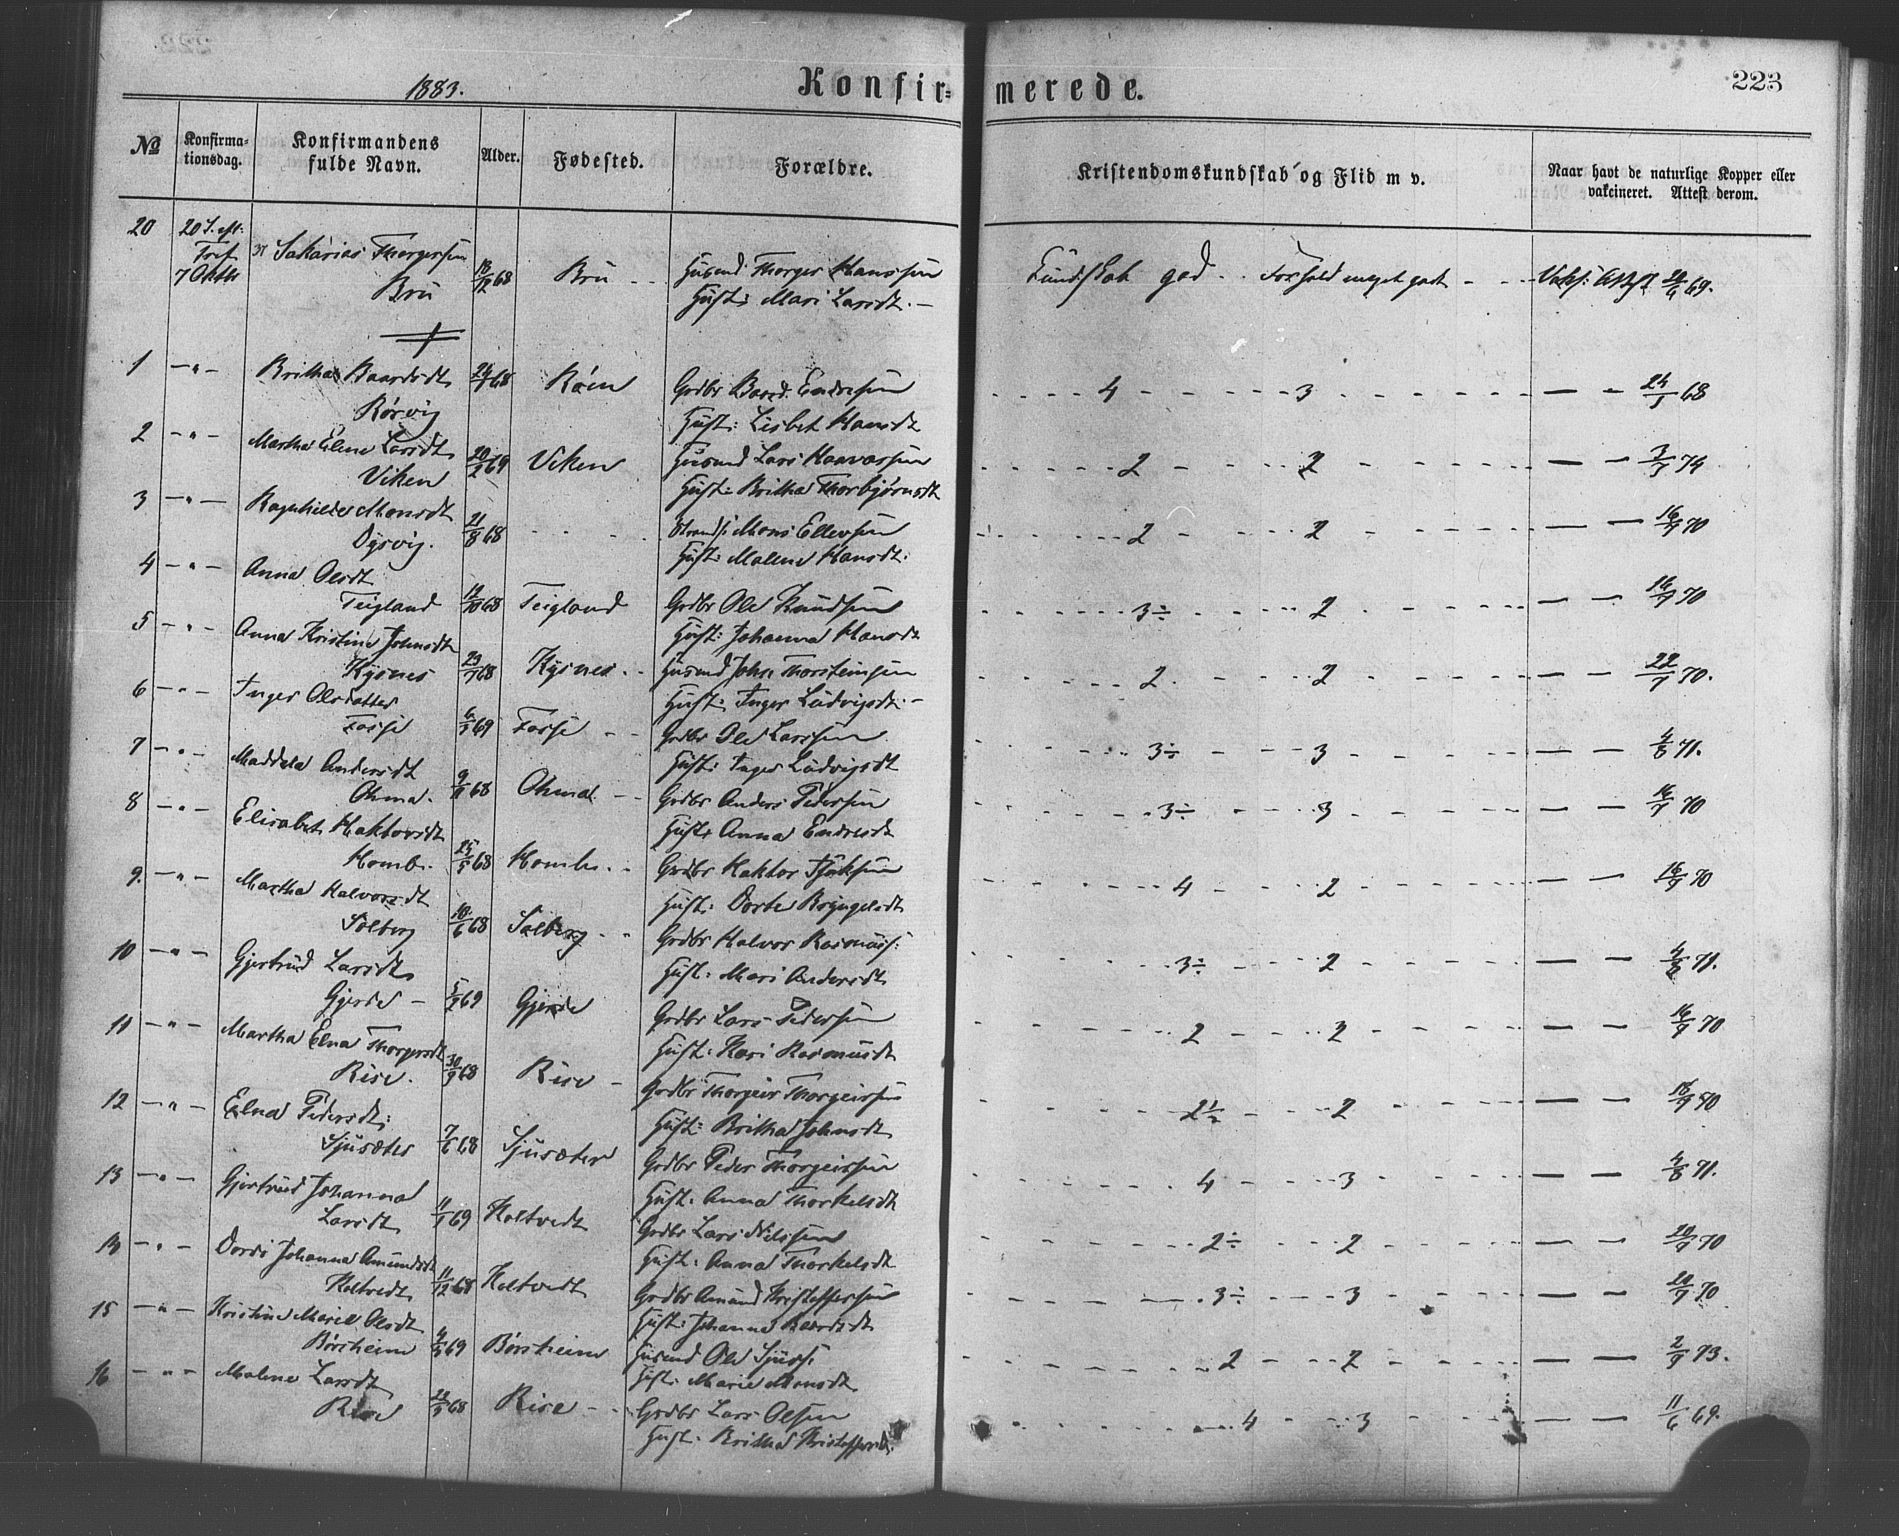 1883.
Konfir=merede.
223
No
Konfirma-tionsdag.
Konfirmandens fulde Navn.
Alder.
Fødested.
Forældre.
Kristendomskundskab og Flid m v.
Naar havt de naturlige Kopper eller vakcineret. Attest derom.
20 20 S. eft: Tref. 7 Oktbr Sakarias Thorgersen Bru 18/12 68 Bru Husmd Thorger Hanssen
Hust: Mari Larsdt. Kundskab god. Forhold meget godt Vaks: Attest 69.
1 - " - Britha Baardsdt Rørvig 68 Røen Grdbr Baard Endresen
Hust: Lisbet Hansdt 4 3 68
2 - " - Martha Eline Larsdt Viken 20/2 69 Viken Husmd Lars Haavarsen
Hust: Britha Thorbjørnsdt 2 2 74
3 - " - Ragnhilde Monsdt Dysvig. 21/8 68 Strands: Mons Ellevsen
Hust: Malene Hansdt. 2 2 16/9 70
4 - " - Anna Olsdt Teigland 12/10 68 Teigland Grdbr Ole Knudsen
Hust: Johanna Hansdt 3÷ 2 16/9 70
5 - " - Anna Kristine Johnsdt Kysnes 68 Kysnes Husmd John Thorsteinsen
Hust: Inger Ludvigsdt. 2 2 22/9 70.
6 - " - Inger Olsdatter Fosse 69 Fosse Grdbr Ole Larssen
Hust: Inger Ludvigsdt 3÷ 3 4/8 71.
7 - " - Maddela Andersdt Ohma. 9/11 68 Ohma Grdbr Anders Pedersen
Hust: Anna Endresdt 3÷ 3 16/9 70
8 - " - Elisabet Haktorsdt Hombr. 25/5 68 Hombr. Grdbr Haktor
Hust: Dorte Bryngelsdt 4 2 16/9 70
9. - " - Martha Halvorsdt Solberg 10/6 68 Solberg Grdbr Halvor Rasmuss:
Hust: Mari Andersdt 3÷ 2 4/8 71.
10 - " - Gjertrud Larsdt Gjerde 5/2 69 Gjerde Grdbr Lars Pedersen
Hust: Kari Rasmusdt 2 2 16/9 70
11 - " - Martha Elna Thorgersdt Rise. 30/9 68 Rise Grdbr Thorgeir Thorgeirsen
Hust: Britha Johnsdt 2½ 2 16/9 70
12 - " - Elna Pedersdt: Sjusæter 7/6 68 Sjusæter Grdbr Peder Thorgeirssen
Hust. Anna Thorkelsdt 4 3 4/8 71.
13 - " - Gjertrud Johanna Larsdt 11/1 69 Holtvedt Grdbr Lars Nilssen
Hust. Anna Thorkelsdt 2÷ 2 20/9 70
- " - Dordi Johanna Amundsdt Holtvedt 11/12 68 Holtvedt Grdbr Amund Kristoffersen
Hust: Johanna Baardsdt 3÷ 3 20/9 70
15 - " - Kristine Marie Olsdt Børsheim 69 Børsheim Husmd Ole Sjurs:
Hust: Marie Monsdt 2 2 2/9 73.
16 - " - Malene Larsdt Rise 68 Rise Grdbr Lars Olsen
Hust. Britha Kristoffersdt. 4 3 11/6 69.